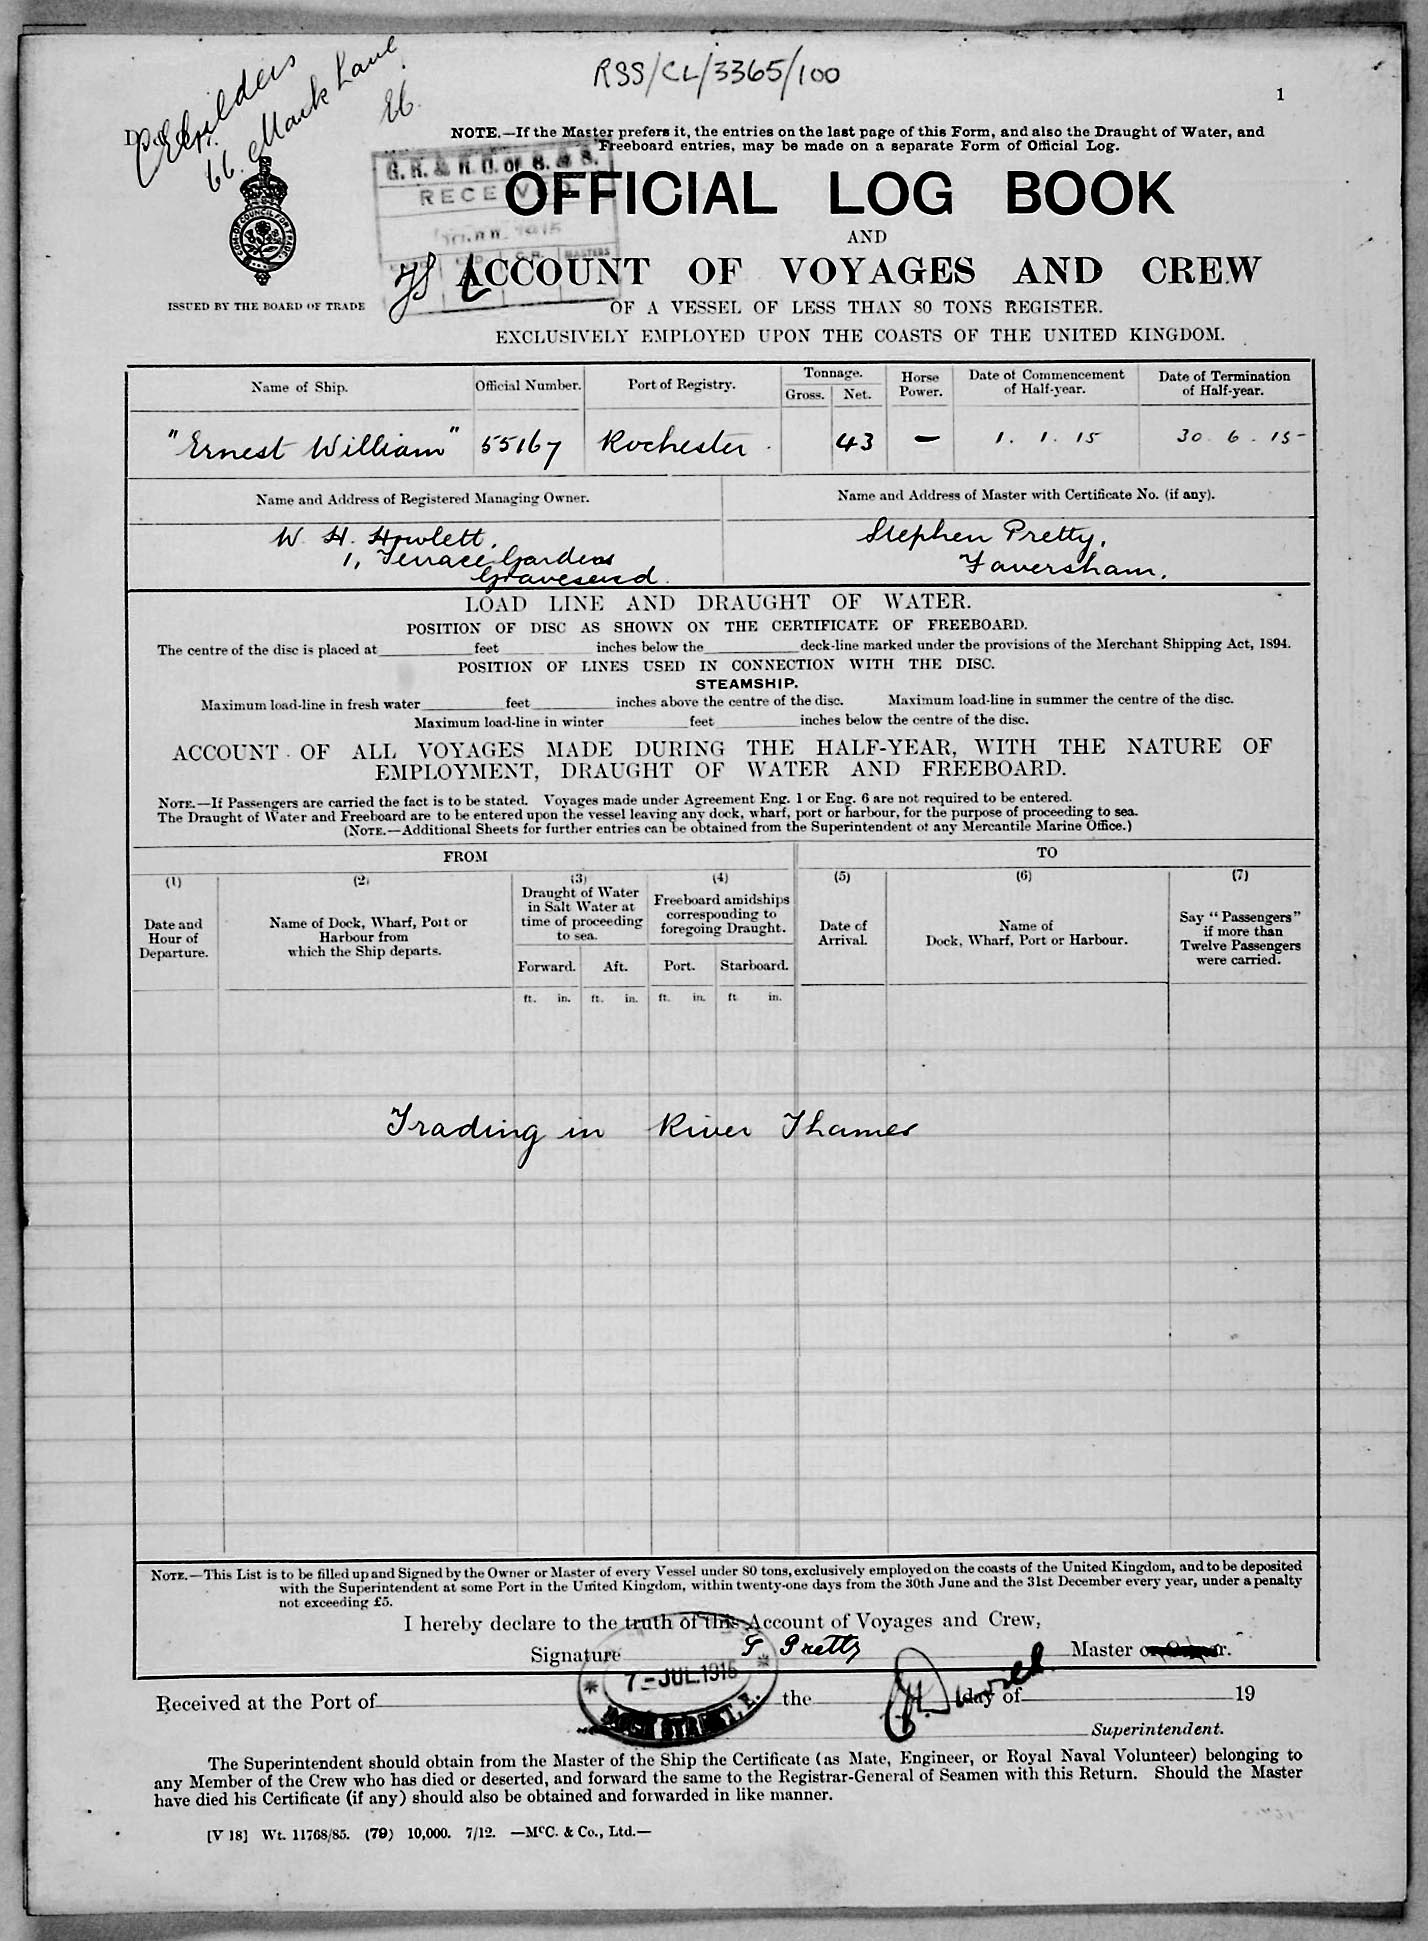 RSS/CL/3365/100
1
66. Mark Lane
NOTE.—If the Master prefers it, the entries on the last page of this Form, and also the Draught of Water, and
Freeboard entries, may be made on a separate Form of Official Log.
G. R. & R. O. OF S. & S.
RECEIVED
1915
MASTERS
OFFICIAL LOG BOOK
AND
ACCOUNT OF VOYAGES AND CREW
OF A VESSEL OF LESS THAN 80 TONS REGISTER.
EXCLUSIVELY EMPLOYED UPON THE COASTS OF THE UNITED KINGDOM.
COM. OF COUNCIL FOR TRADE
ISSUED BY THE BOARD OF TRADE
Name of Ship. Official Number. Port of Registry. Tonnage. Horse Power. Date of Commencement of Half-year. Date of Termination of Half-year.
Gross. Net.
"Ernest William" 55167 Rochester. 43 — 1.1.15 30.6.15-
Name and Address of Registered Managing Owner. Name and Address of Master with Certificate No. (if any).
W. H. Howlett, Stephen Pretty,
1, Terrace Gardens Faversham.
Gravesend.
LOAD LINE AND DRAUGHT OF WATER.
POSITION OF DISC AS SHOWN ON THE CERTIFICATE OF FREEBOARD.
The centre of the disc is placed at feet inches below the deck-line marked under the provisions of the Merchant Shipping Act, 1894.
POSITION OF LINES USED IN CONNECTION WITH THE DISC.
STEAMSHIP.
Maximum load-line in fresh water feet inches above the centre of the disc. Maximum load-line in summer the centre of the disc.
Maximum load-line in winter feet inches below the centre of the disc.
ACCOUNT OF ALL VOYAGES MADE DURING THE HALF-YEAR, WITH THE NATURE OF
EMPLOYMENT, DRAUGHT OF WATER AND FREEBOARD.
NOTE.—If Passengers are carried the fact is to be stated. Voyages made under Agreement Eng. 1 or Eng. 6 are not required to be entered.
The Draught of Water and Freeboard are to be entered upon the vessel leaving any dock, wharf, port or harbour, for the purpose of proceeding to sea.
(NOTE.—Additional Sheets for further entries can be obtained from the Superintendent of any Mercantile Marine Office.)
FROM TO
(1) (2) (3) (4) (5) (6) (7)
Date and Hour of Departure.
Name of Dock, Wharf, Port or Harbour from which the Ship departs.
Draught of Water in Salt Water at time of proceeding to sea.
Freeboard amidships corresponding to foregoing Draught.
Date of Arrival.
Name of Dock, Wharf, Port or Harbour.
Say "Passengers" if more than Twelve Passengers were carried.
Forward. Aft. Port. Starboard.
ft. in. ft. in. ft. in. ft in.
Trading in River Thames
NOTE.—This List is to be filled up and Signed by the Owner or Master of every Vessel under 80 tons, exclusively employed on the coasts of the United Kingdom, and to be deposited
with the Superintendent at some Port in the United Kingdom, within twenty-one days from the 30th June and the 31st December every year, under a penalty
not exceeding £5.
I hereby declare to the truth of this Account of Voyages and Crew,
Signature S Pretty Master or Owner.
7-JUL.1915
Received at the Port of the day of 19
Superintendent.
The Superintendent should obtain from the Master of the Ship the Certificate (as Mate, Engineer, or Royal Naval Volunteer) belonging to
any Member of the Crew who has died or deserted, and forward the same to the Registrar-General of Seamen with this Return. Should the Master
have died his Certificate (if any) should also be obtained and forwarded in like manner.
[V 18] Wt. 11768/85. (79) 10,000. 7/12. —McC. & Co., Ltd.—